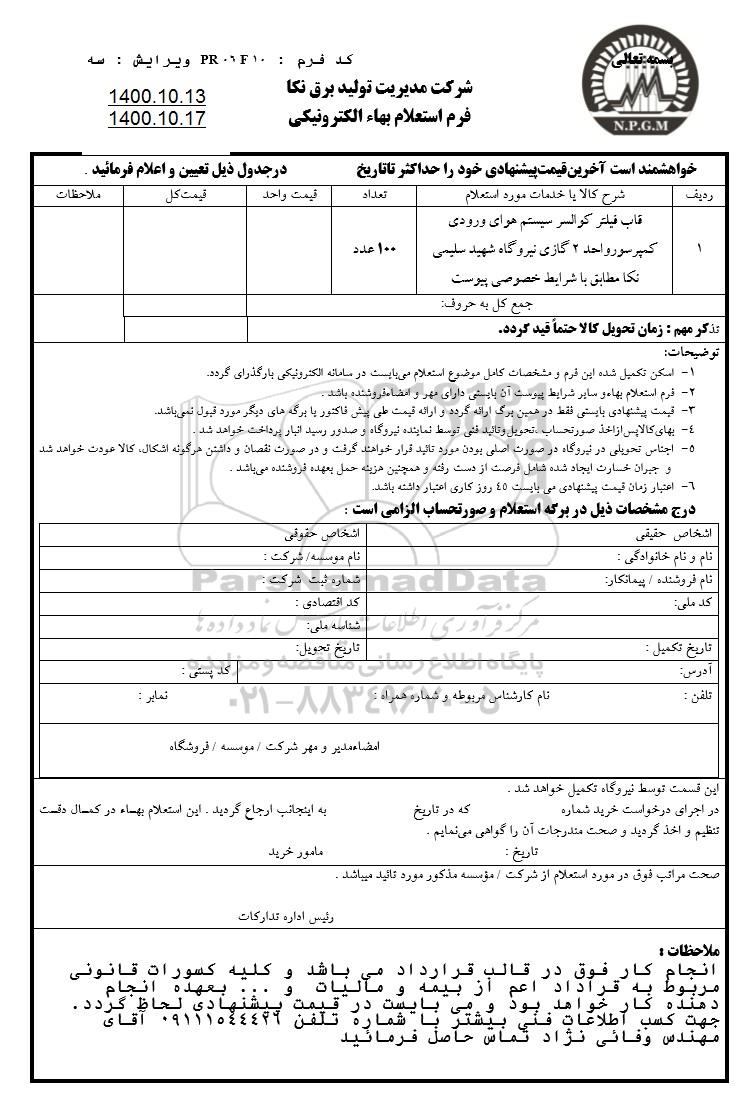 بسمه تعالی
کد فرم : PR ۰۶ F ۱۰ ویرایش : سه
شرکت مدیریت تولید برق نکا
1400.10.13
فرم استعلام بهاء الکترونیکی
1400.10.17
N.P.G.M
خواهشمند است آخرین قیمت پیشنهادی خود را حداکثر تاتاریخ درجدول ذیل تعیین و اعلام فرمائید .
ردیف شرح کالا یا خدمات مورد استعلام تعداد قیمت واحد قیمت کل ملاحظات
قاب فیلتر کوالسر سیستم هوای ورودی
۱ کمپرسورواحد ۲ گازی نیروگاه شهید سلیمی ۱۰۰ عدد
نکا مطابق با شرایط خصوصی پیوست
جمع کل به حروف:
تذکر مهم : زمان تحویل کالا حتماً قید گردد.
توضیحات:
۱- اسکن تکمیل شده این فرم و مشخصات کامل موضوع استعلام می‌بایست در سامانه الکترونیکی بارگذرای گردد.
۲- فرم استعلام بهاءو سایر شرایط پیوست آن بایستی دارای مهر و امضاءفروشنده باشد .
۳- قیمت پیشنهادی بایستی فقط در همین برگ ارائه گردد و ارائه قیمت طی پیش فاکتور یا برگه های دیگر مورد قبول نمی‌باشد.
۴- بهای‌کالاپس‌ازاخذ صورتحساب ،تحویل‌وتائید فنی توسط نماینده نیروگاه و صدور رسید انبار پرداخت خواهد شد .
۵- اجناس تحویلی در نیروگاه در صورت اصلی بودن مورد تائید قرار خواهند گرفت و در صورت نقصان و داشتن هرگونه اشکال، کالا عودت خواهد شد
و جبران خسارت ایجاد شده شامل فرصت از دست رفته و همچنین هزینه حمل بعهده فروشنده می‌باشد .
۶- اعتبار زمان قیمت پیشنهادی می بایست ۴۵ روز کاری اعتبار داشته باشد.
درج مشخصات ذیل در برگه استعلام و صورتحساب الزامی است :
اشخاص حقیقی اشخاص حقوقی
نام و نام خانوادگی : نام موسسه/ شرکت :
نام فروشنده / پیمانکار: شماره ثبت شرکت :
ParsNamadData
کد ملی: کد اقتصادی :
شناسه ملی:
تاریخ تکمیل : تاریخ تحویل:
پایگاه اطلاع رسانی مناقصه و مزایده
آدرس: کد پستی :
تلفن : نام کارشناس مربوطه و شماره همراه : نمابر :
۰۲۱-۸۸۳۴۹۶۷۰-۵
امضاءمدیر و مهر شرکت / موسسه / فروشگاه
این قسمت توسط نیروگاه تکمیل خواهد شد .
در اجرای درخواست خرید شماره که در تاریخ به اینجانب ارجاع گردید . این استعلام بهـاء در کمـال دقـت
تنظیم و اخذ گردید و صحت مندرجات آن را گواهی می‌نمایم .
تاریخ : مامور خرید
صحت مراتب فوق در مورد استعلام از شرکت / مؤسسه مذکور مورد تائید میباشد .
رئیس اداره تدارکات
ملاحظات :
انجام کار فوق در قالب قرارداد می باشد و کلیه کسورات قانونی
مربوط به قراداد اعم از بیمه و مالیات و ... بعهده انجام
دهنده کار خواهد بود و می بایست در قیمت پیشنهادی لحاظ گردد.
جهت کسب اطلاعات فنی بیشتر با شماره تلفن ۰۹۱۱۱۵۴۴۴۲۶ آقای
مهندس وفائی نژاد تماس حاصل فرمائید